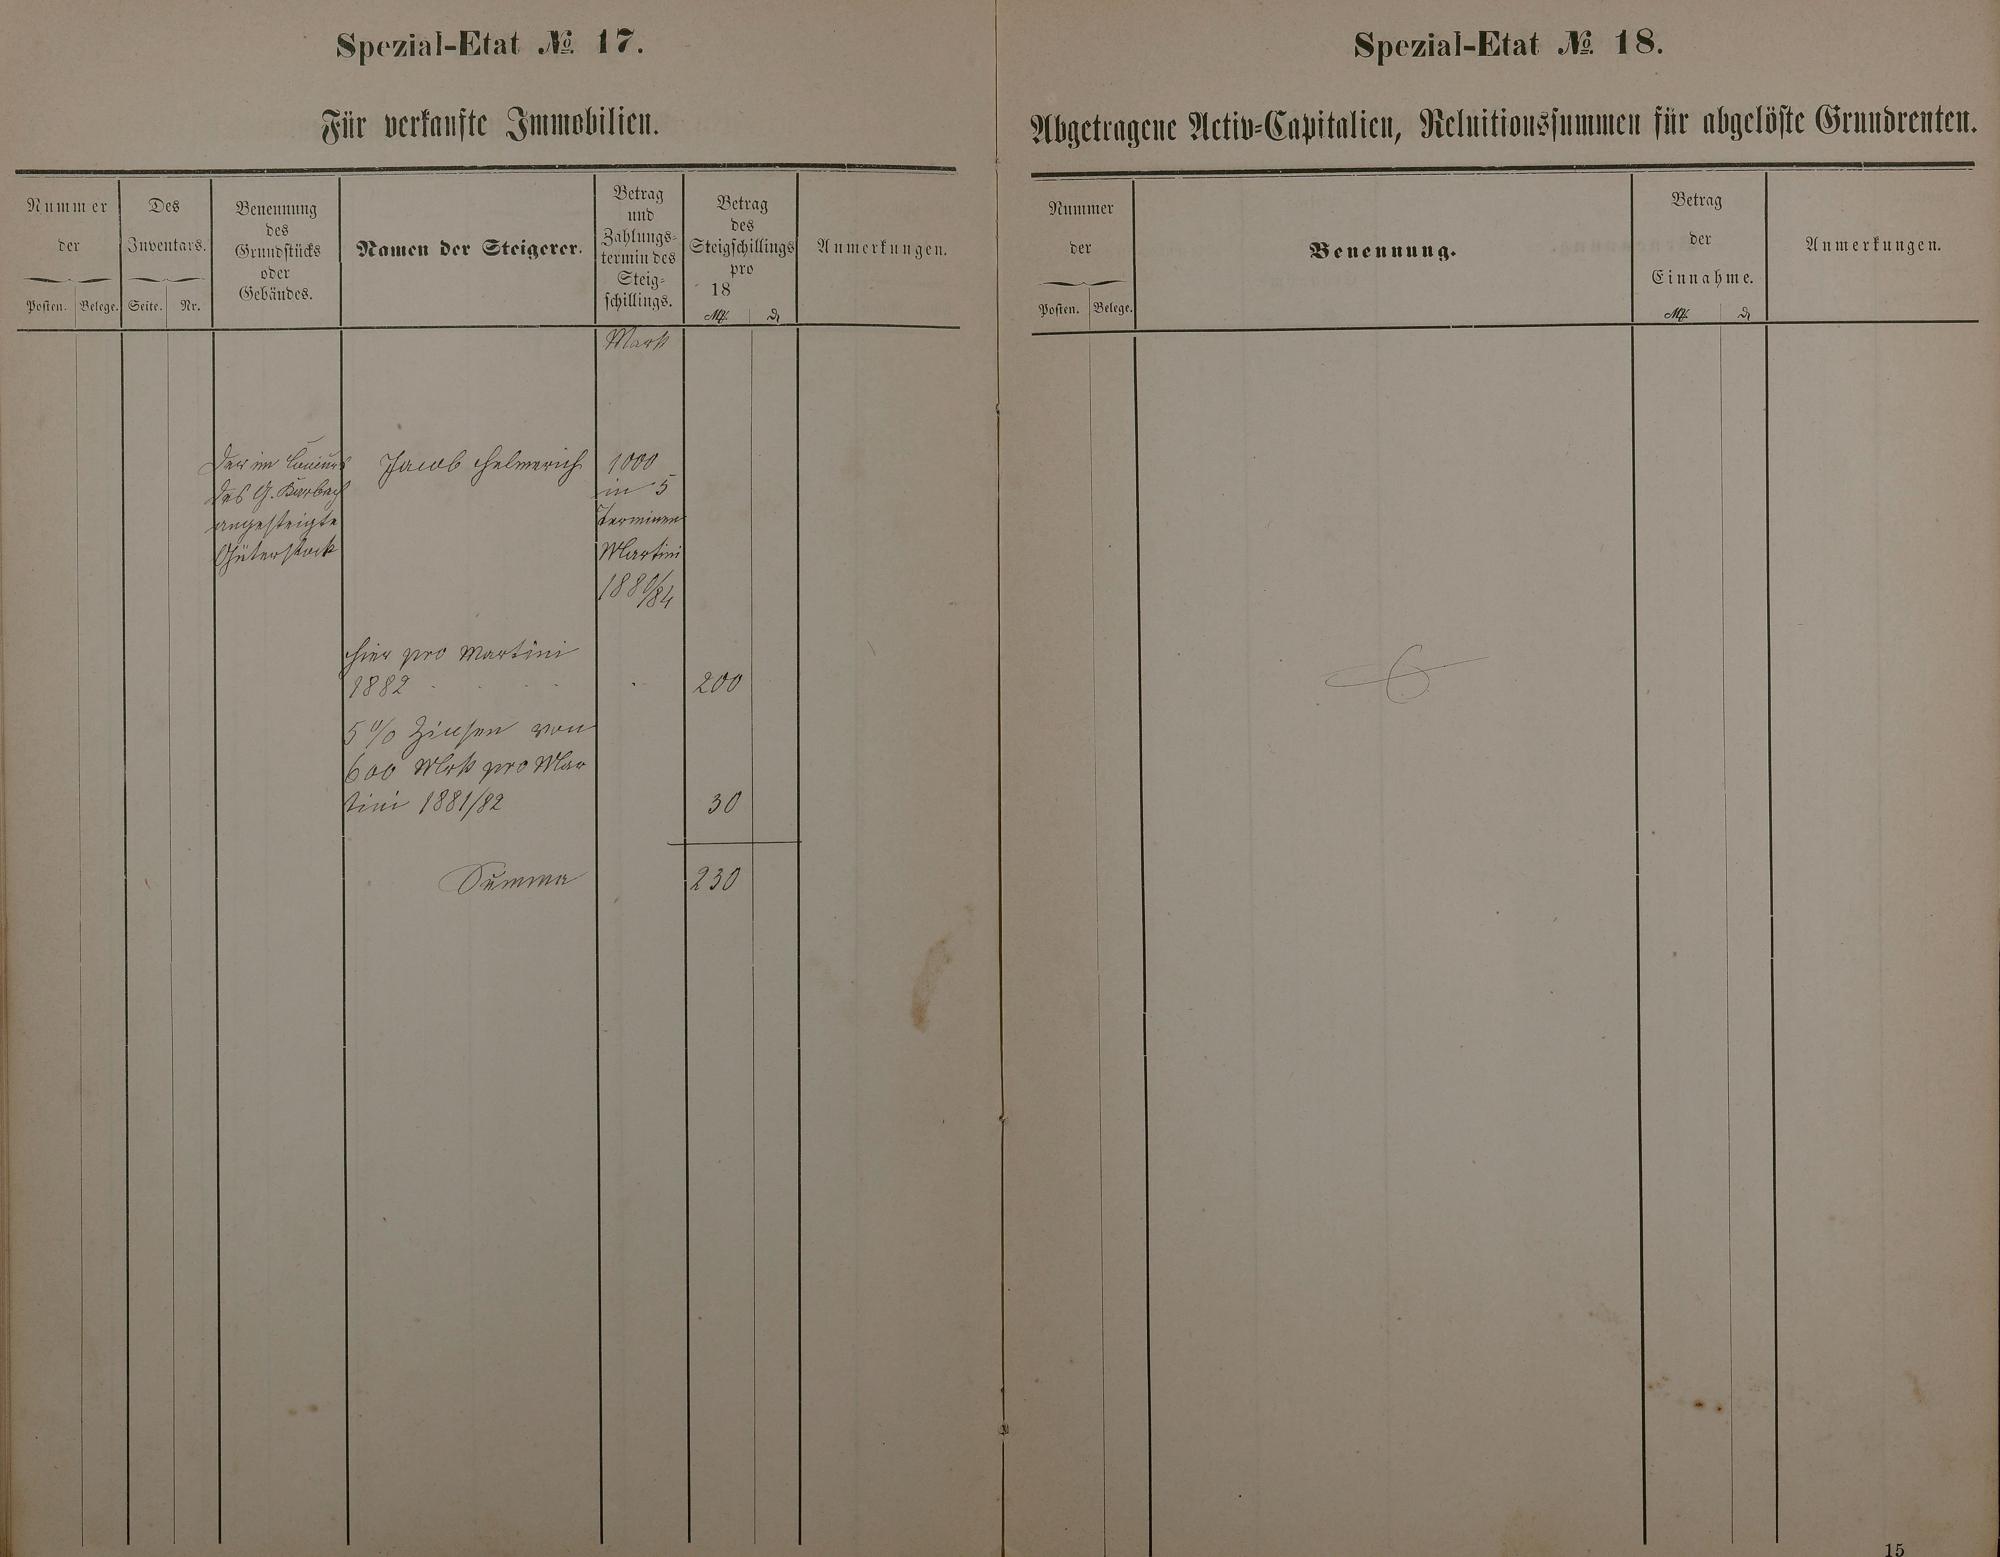 Spezial-Etat № 17.
Für verkaufte Immobilien.
Nummer
der
Posten. Belege.
Des
Inventars.
Seite. Nr.
Benennung
des
Grundstücks
oder
Gebäudes.
Namen der Steigerer.
Betrag
und
Zahlungs-
termin des
Steig-
schillings.
Betrag
des
Steigschillings
pro
18
M. d.
Anmerkungen.
Mark
Der im Concurs
des G. Karbach
angesteigte
Güterstock
Jacob Helmerich
1000
in 5
Terminen
Martini
1880/84
hier pro Martini
1882 200
5% Zinsen von
600 Mrk pro Mar
tini 1881/82 30
Summa 230
Spezial-Etat № 18.
Abgetragene Activ-Capitalien, Reluitionssummen für abgelöste Grundrenten.
Nummer
der
Posten. Belege.
Benennung.
Betrag
der
Einnahme.
M. d.
Anmerkungen.
15